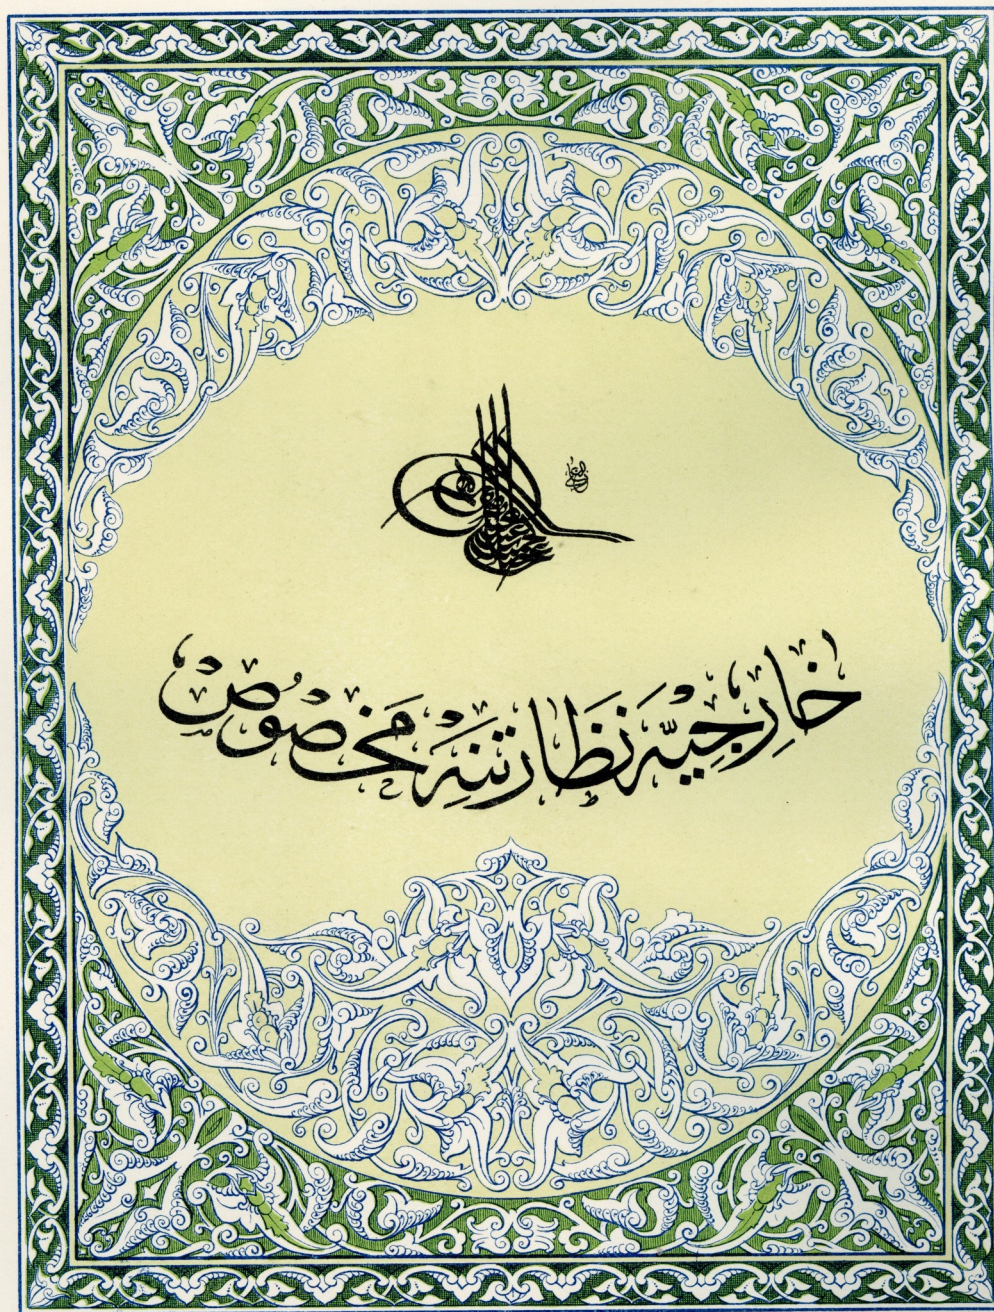 خارجیه نظارتنه مخصوص